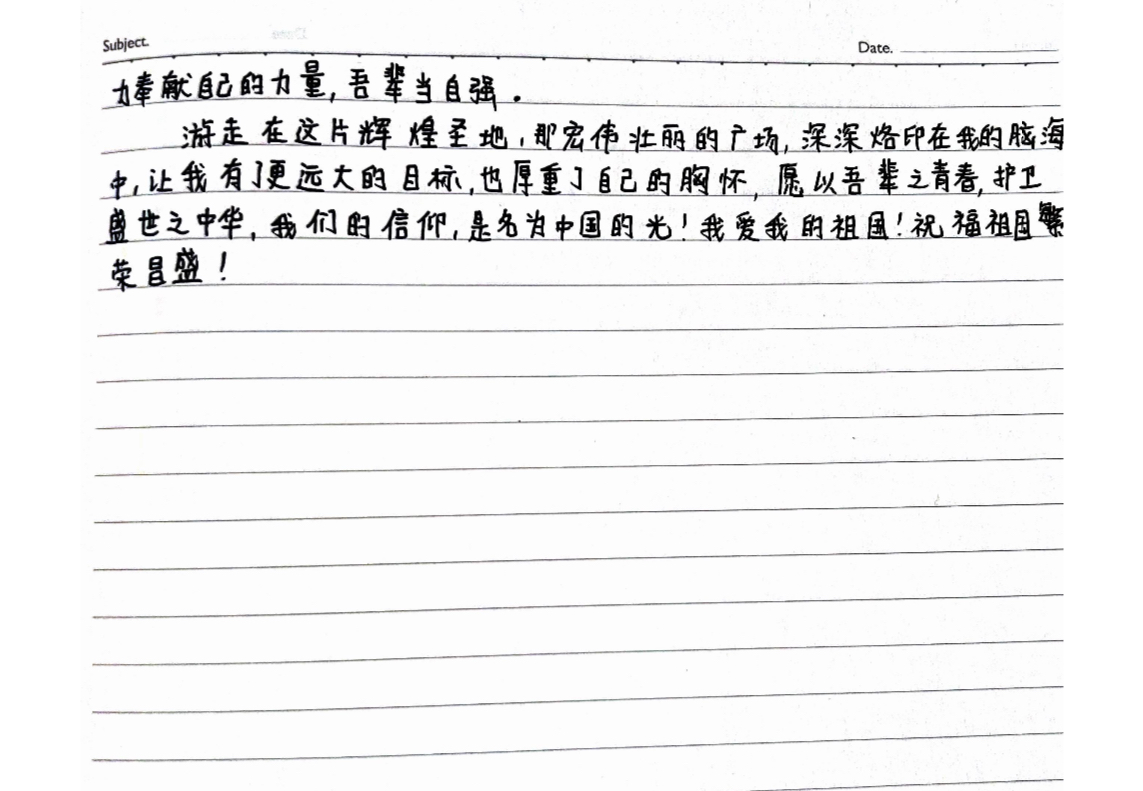 Subject.
Date.
力奉献自己的力量，吾辈当自强．
游走在这片辉煌圣地，那宏伟壮丽的广场，深深烙印在我的脑海
中，让我有了更远大的目标，也厚重了自己的胸怀，愿以吾辈之青春，护卫
盛世之中华，我们的信仰，是名为中国的光！我爱我的祖国！祝福祖国繁
荣昌盛！